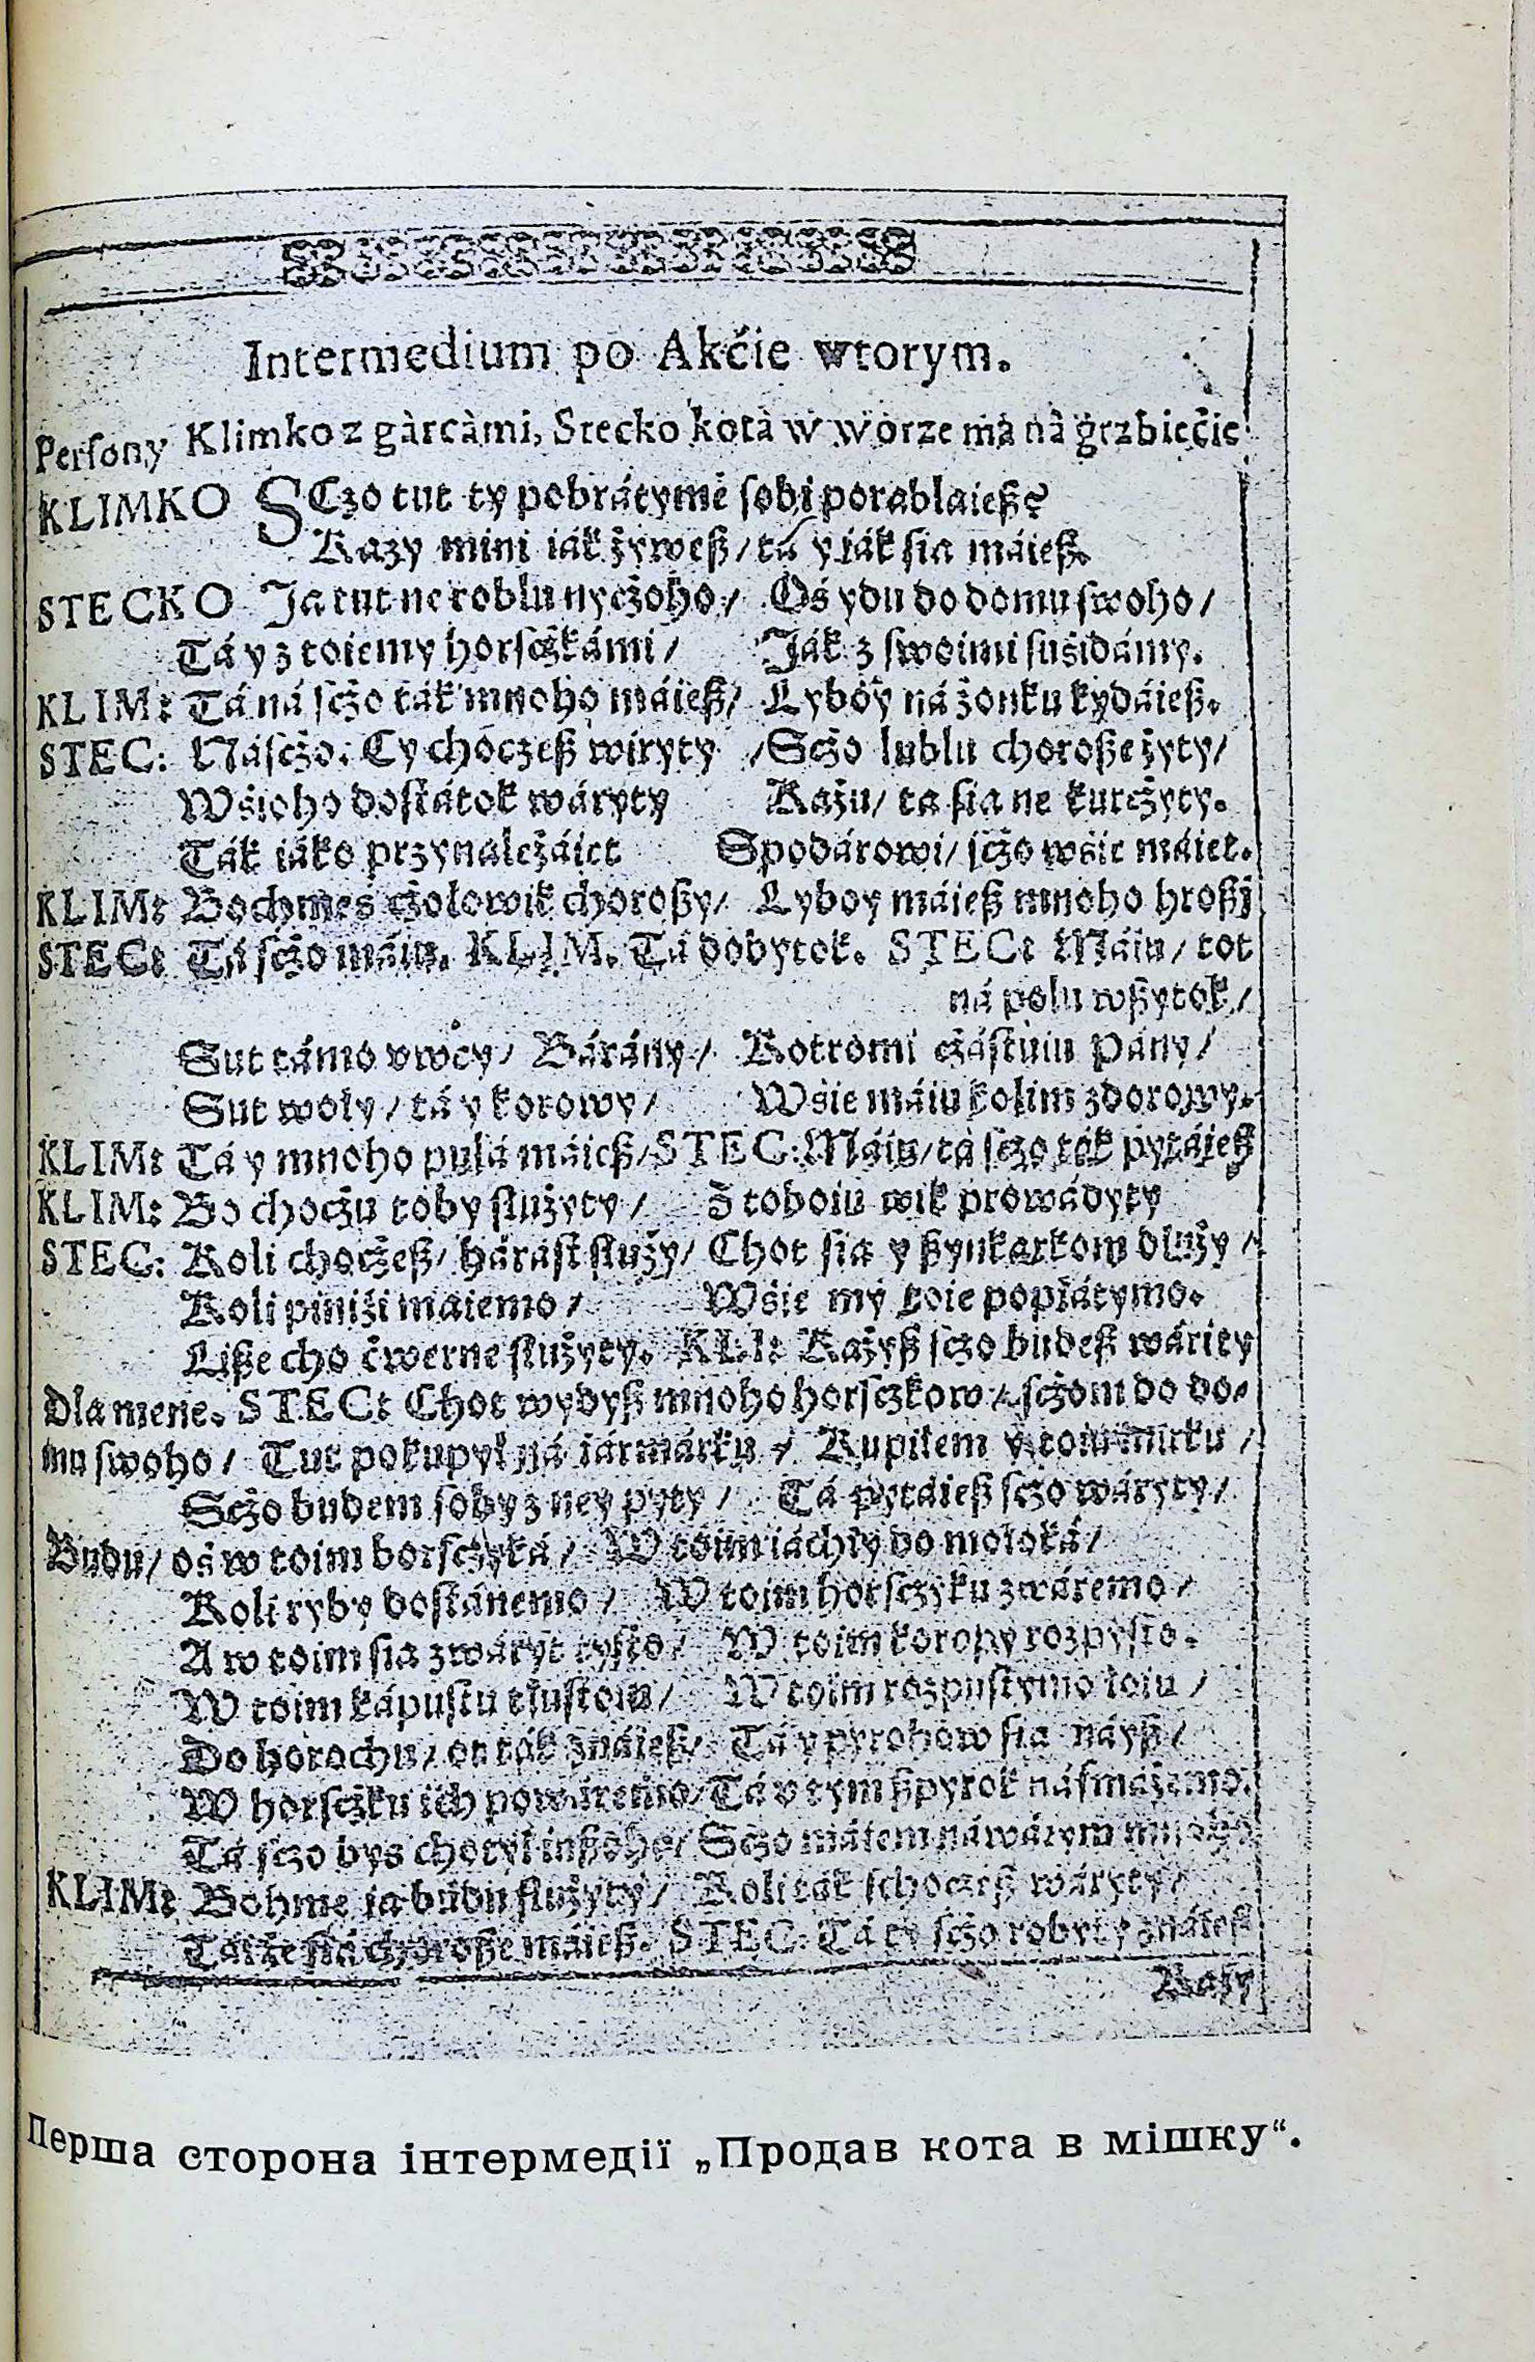 Intermedium po Akćie wtorym.
Persony Klimko z gàrcàmi, Stecko kotà w worze mà nà grzbiećie
KLIMKO SCzo tut ty pobrátyme sobi porablaießʔ
Kazy mini iák żyweß / tá y iák sia máieß.
STECKO Ja tut ne roblu nyczoho / Oś ydu do domu swoho /
Tá y z toiemy horsczkámi / Ják z swoimi susidámy.
KLIM: Tá ná sczo ták mnoho máieß / Lyboy ná żonku kydáieß.
STEC: Násczo. Cy choczeß wiryty / Sczo lublu choroße żyty /
Wsioho dostátok wáryty Każu / ta sia ne kurczyty.
Ták iáko przynależáiet Spodárowi / sczo wsie máiet.
KLIM: Bochmes czołowik choroßy / Lyboy máieß mnoho hroßj
STEC: Tá sczo máiu. KLIM. Tá dobytok. STEC: Máiu / tot
ná polu wßytok /
Sut támo vwcy / Bárány / Kotromi czástuiu Pány /
Sut woły / tá y korowy / Wsie máiu kolim zdorowy.
KLIM: Tá y mnoho pulá máieß / STEC: Máiu / tá sczo ták pytáieß
KLIM: Bo choczu toby służyty / Z toboiu wik prowádyty
STEC: Koli choczeß / hárást służy / Chot sia y ßynkarkom dłuży /
Koli piniżi maiemo / Wsie my toie popłátymo.
Liße cho czwerne służyty. KLI: Każyß sczo budeß wárity
Dla mene. STEC: Chot wydyß mnoho horsczkow / sczom do do-
mu swoho / Tut pokupył ná iármárku / Kupiłem y toiu mirku /
Sczo budem soby z ney pyty / Tá pytáieß sczo wáryty /
Budu / oś w toim borsczyká / W toim iáchły do mołoká /
Koli ryby dostánemo / W toim horsczyku zwáremo /
A w toim sia zwáryt tysto / W toim koropy rozpysto.
W toim kápustu tłustoiu / W toim rozpustymo łoiu /
Do horochu / ot ták znáieß / Tá y pyrohow sia náyß /
W horsczku ich powáremo / Tá v tym ßpyrok násmażemo.
Tá sczo bys chotył inßoho / Sczo mátem náwárym mnoho.
KLIM: Bohme ia budu służyty / Koli ták schoczeß wáryty /
Tákże sia choroße máieß. STEC: Tá ty sczo robyty znáieß
Kazy
Перша сторона інтермедії „Продав кота в мішку“.